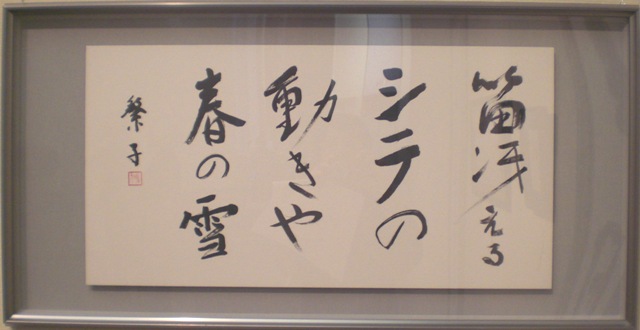 笛冴える
シテの
動きや
春の雪
繁子